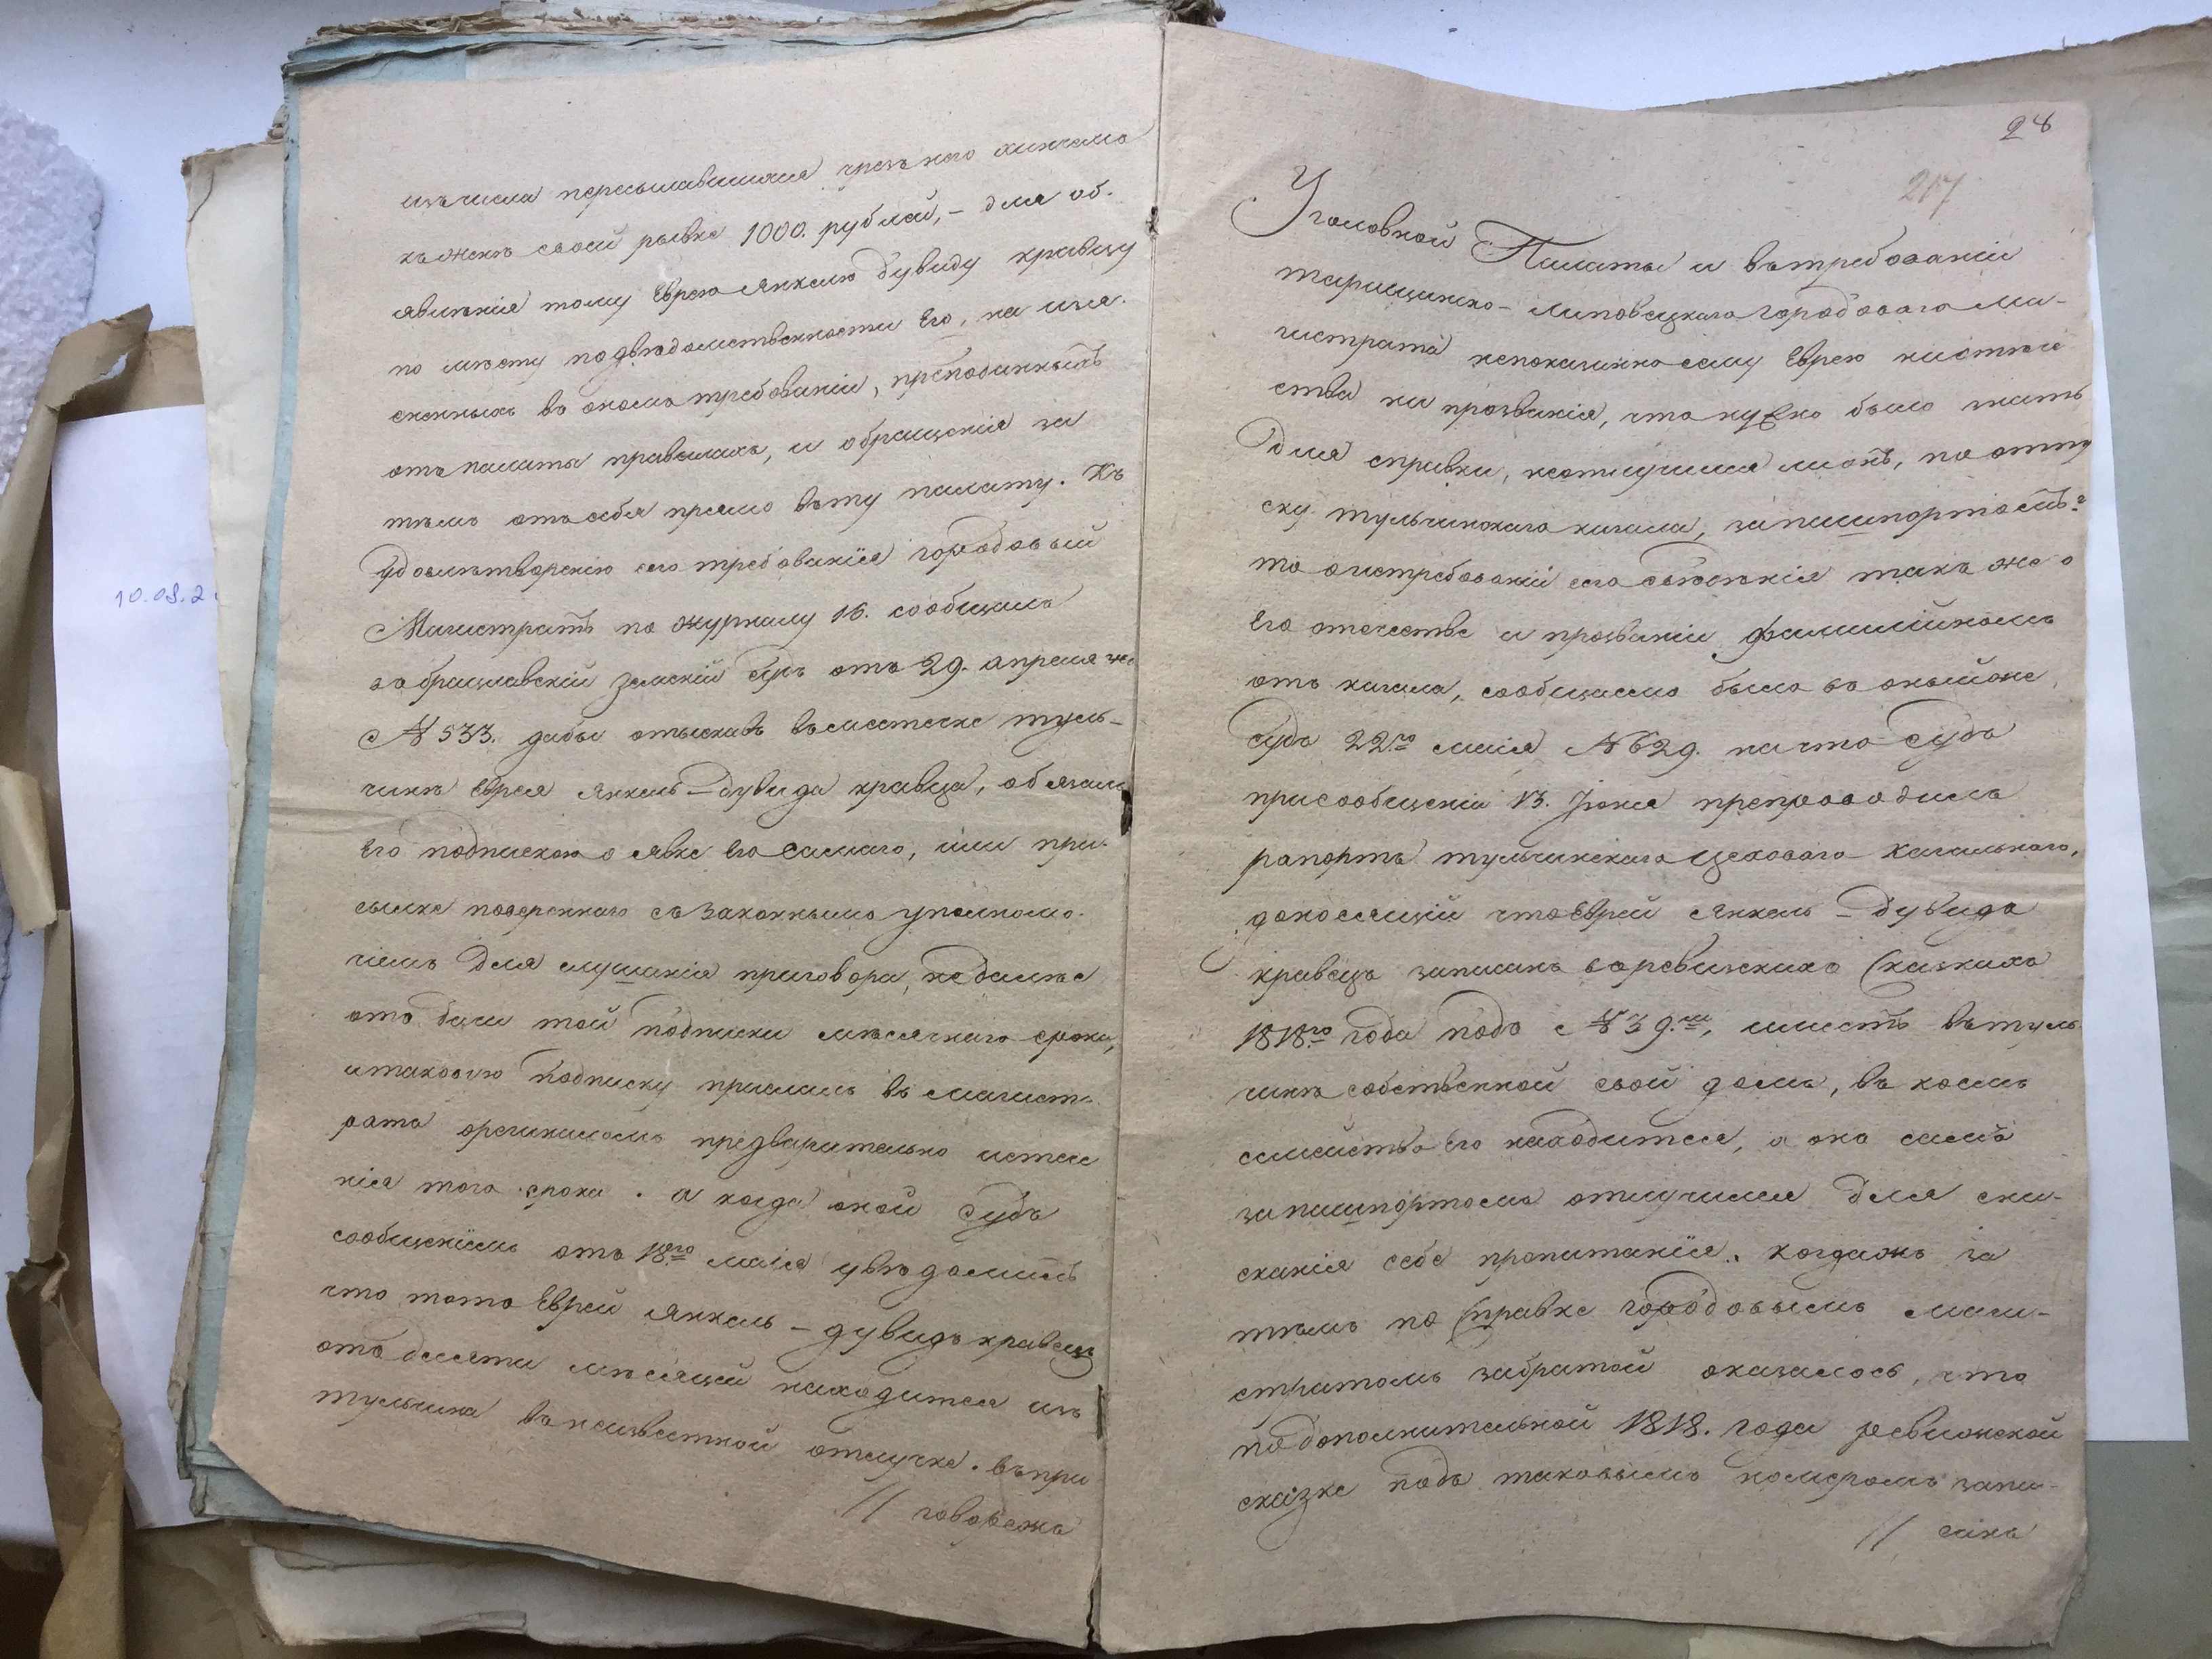 изъ числа пересылавшихся чрезъ него
къ женѣ своей рывке 1000. рублей, – для об.
явленія тому Еврею Янкелю Дувиду кравцу
по мѣсту подвѣдомственности Его, на изъя.
сненныхъ въ ономъ требованіи, преподанныхъ
отъ палаты правилахъ, и обращенія за
тѣмъ отъ себя прямо въ ту палату. Къ
удовлетворенію сего требованія городовый
Магистратъ по журналу 16. сообщилъ
въ брацлавскій земскій судъ отъ 29. апреля
№ 533. дабы отыскавъ въ местечке туль–
чинѣ Еврея Янкель–Дувида кравца, обязалъ
Его подпискою о явке Его самаго, или при-
сылке повереннаго съ законнымъ уполномо-
чіемъ для слушанія приговора, не далѣе
отъ дачи той подписки мѣсячнаго срока,
и таковую подписку прислалъ въ магист-
ратъ оригиналомъ предварительно истече
нія того срока. а когда оной Судъ
сообщеніемъ отъ 18го маія увѣдомилъ
что тотъ Еврей Янкель – дувидъ кравецъ
отъ десяти мѣсяцей находится изъ
тульчина въ неизвестной отлучке. въ при
// говоре жъ
28
217
Уголовной Палаты и въ требованіи
таращанско–липовецкаго городоваго Ма-
гистрата непоказанно сему Еврею
ства ни прозванія, что нужно было знать
Для справки, неотлучился ли онъ, по отпу
ску тульчинскаго кагала, за пашпортомъ?
то о истребованіи сего сведенія такъ же о
Его отечестве и прозваніи фамилійномъ
отъ кагала, сообщенно было въ оный же
Судъ 22го маія № 629. на что Судъ
при сообщеніи 13. Іюня препроводилъ
рапортъ тульчинскаго цеховаго кагальнаго,
доносящій что Еврей Янкель – Дувидъ
кравецъ записанъ въ ревизскихъ Сказкахъ
1818го года подъ № 39.мъ, имѣетъ въ туль
чинѣ собственной свой домъ, въ коемъ
семейство Его находится, а онъ самъ
за пашпортомъ отлучился для сни-
сканія себе пропитанія. когдажъ за
тѣмъ по Справке городовымъ маги-
стратомъ забратой оказалось, что
по дополнительной 1818. года ревизской
сказке подъ таковымъ номеромъ запи-
// санъ
10.09.2